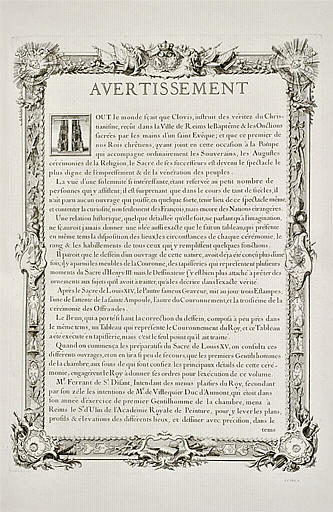 AVERTISSEMENT
TOUT le monde sçait que Clovis, instruit des vérités du Chris-
tianisme, reçut dans la Ville de Reims le Baptême & les Onctions
sacrées par les mains d'un saint Evêque; et que ce premier de
nos Rois chrétiens, ayant joint en cette occasion à la Pompe
qui accompagne ordinairement les Souverains, les Augustes
cérémonies de la Religion, le Sacre de ses successeurs est devenu le spectacle le
plus digne de l'empressement & de la vénération des peuples.
La vue d'une solemnité si intéressante, étant réservée au petit nombre de
personnes qui y assistent, il est surprenant que dans le cours de tant de siècles, il
n'ait paru aucun ouvrage qui pusse, en quelque sorte, tenir lieu de ce spectacle même,
et contenter la curiosité, non seulement des François, mais encore des Nations étrangères.
Une relation historique, quelque détaillée qu'elle soit, ne parlant qu'à l'imagination,
ne sçauroit jamais donner une idée aussi exacte que le fait un tableau, qui présente
en même tems la disposition des lieux, les circonstances de chaque cérémonie, le
rang & les habillements de tous ceux qui y remplissent quelques fonctions.
Il paroit que le dessein d'un ouvrage de cette nature, avoit déja été conçu plus d'une
fois; il y a parmi les meubles de la Couronne, des tapisseries qui représentent plusieurs
moments du Sacre d'Henry III. mais le Dessinateur s'y est bien plus attaché à prêter des
ornements aux sujets qu'il avoit à traiter, qu'à les décrire dans l'exacte vérité.
Après le Sacre de Louis XIV, le Pautre fameux Graveur, mit au jour trois Estampes.
l'une de l'attente de la sainte Ampoule, l'autre du Couronnement, et la troisième de la
Cérémonie des Offrandes.
Le Brun, qui a porté si haut la correction du dessein, composa à peu près dans
le même tems, un Tableau qui représente le Couronnement du Roy, et ce Tableau
a été exécuté en tapisserie, mais c'est le seul point qu'il ait traité.
Quand on commença les préparatifs du Sacre de Louis XV, on consulta ces
différents ouvrages, et on en tira si peu de secours, que les premiers Gentilshommes
de la chambre, aux soins de qui sont confiés les principaux détails de cette céré-
monie, engagerent le Roy à donner ses ordres pour l'exécution de ce volume.
Mr. Ferrant de St. Disant, Intendant des menus plaisirs du Roy, secondant
par son zèle les intentions de Mr. de Villequier Duc d'Aumont, qui étoit dans
son année d'exercice de premier Gentilhomme de la chambre, mena à
Reims le Sr. d'Ulin de l'Académie Royale de Peinture, pour y lever les plans,
profils & élévations des différents lieux, et dessiner avec précision, dans le
tems